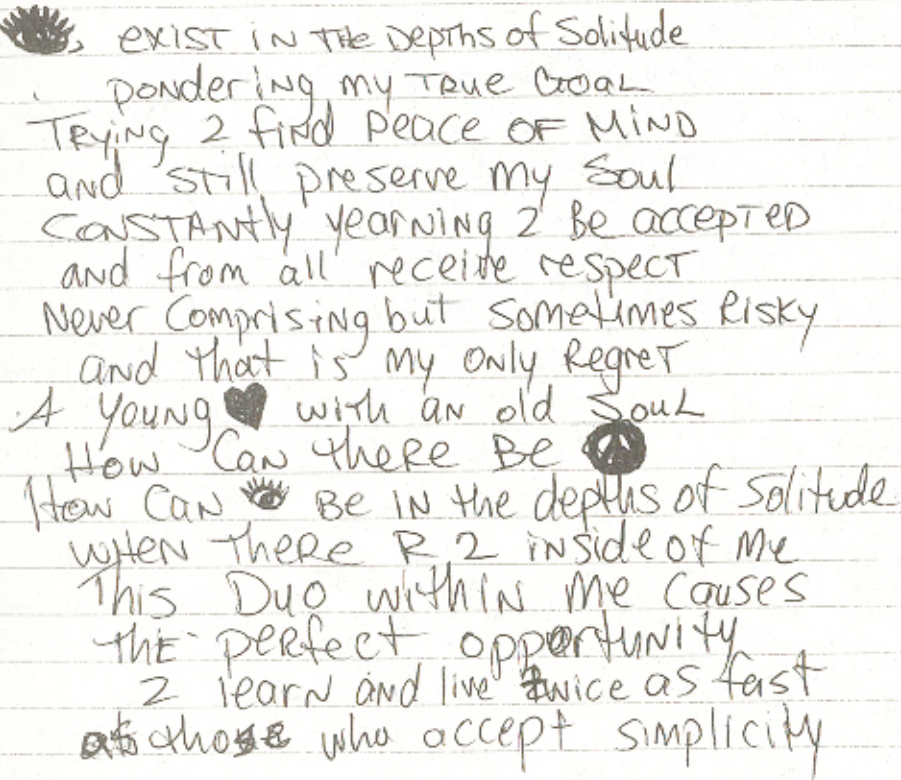 exist in the Depths of Solitude
pondering my True Goal
Trying 2 find peace of Mind
and still preserve my Soul
Constantly yearning 2 Be accepted
and from all receive respect
Never Comprising but sometimes Risky
and that is my only Regret
A Young ♥ with an old Soul
How Can there Be ☮
How Can 👁 Be in the depths of Solitude
when there R 2 inside of me
This Duo within me causes
the perfect opportunity
2 learn and live twice as fast
as those who accept simplicity